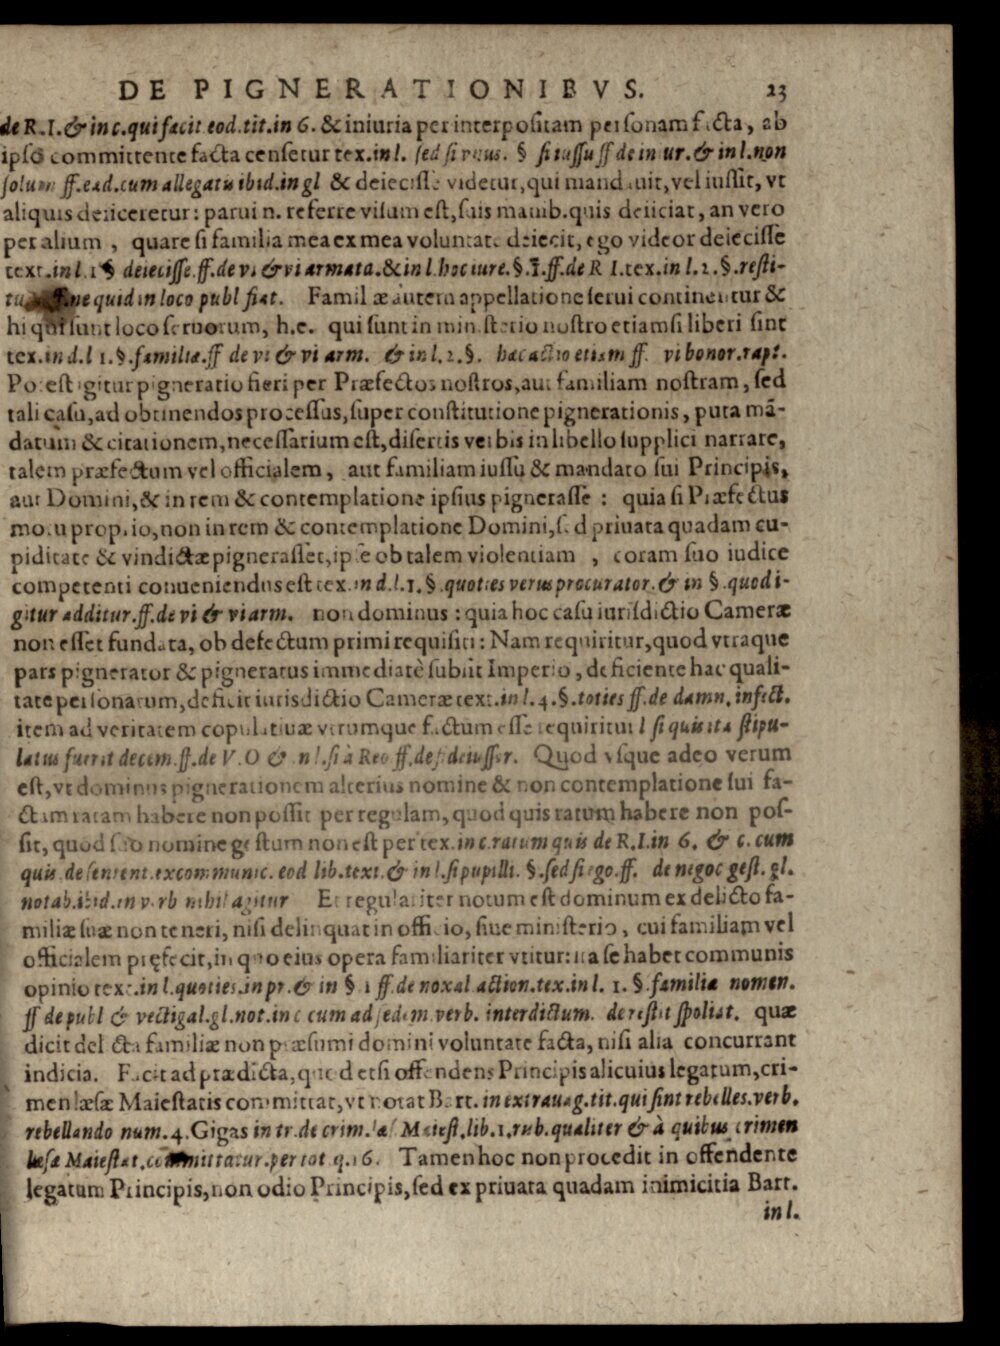 DE PIGNERATIONIBVS. 23
de R.I.& in c.qui facit eod.tit.in 6. & iniuria per interpositam personam facta, ab
ipso committente facta censetur tex.in l. sed si vnus. § si iussu ff de iniur.& in l.non
solum ff.ead.cum allegatis ibid.in gl & deiecisse videtur,qui mandauit,vel iussit, vt
aliquis deiiceretur: parui n. referre visum est,suis manib.quis deiiciat, an vero
per alium , quare si familia mea ex mea voluntate deiecit, ego videor deiecisse
text.in l.1 § deiecisse.ff.de vi & vi armata.& in l.hoc iure.§.1.ff.de R I.tex.in l.2.§.resti-
ff.ne quid in loco publ fiat. Familiæ autem appellatione serui continentur &
hi qui sunt loco seruorum, h.e. qui sunt in ministerio nostro etiamsi liberi sint
tex.in d.l 1.§.familiæ.ff de vi & vi arm. & in l.2.§. hac actio etiam ff. vi bonor.rapt.
Potest igitur pigneratio fieri per Præfectos nostros,aut familiam nostram, sed
tali casu,ad obtinendos processus,super constitutione pignerationis, puta mā-
datum & citationem,necessarium est,disertis verbis in libello supplici narrare,
talem præfectum vel officialem, aut familiam iussu & mandato sui Principis,
aut Domini,& in rem & contemplatione ipsius pignerasse: quia si Præfectus
motu proprio,non in rem & contemplatione Domini,sed priuata quadam cu-
piditate & vindictæ pignerasset,ipse ob talem violentiam , coram suo iudice
competenti conueniendus est tex.in d.l.1.§.quoties verus procurator.& in §.quod i-
gitur additur.ff.de vi & vi arm. non dominus: quia hoc casu iurisdictio Cameræ
non esset fundata, ob defectum primi requisiti: Nam requiritur,quod vtraque
pars pignerator & pigneratus immediatè subsit Imperio, deficiente hac quali-
tate personarum,deficit iurisdictio Cameræ text.in l.4.§.toties ff.de damn.infect.
item ad veritatem copulatiuæ vtrumque factum esse requiritur l si quis ita stipu-
latus fuerit decem.ff.de V.O & in l.si à Reo ff.de fideiussor. Quod vsque adeo verum
est,vt dominus pignerationem alterius nomine & non contemplatione sui fa-
ctam ratam habere non possit per regulam, quod quis ratum habere non pos-
sit, quod suo nomine gestum non est per tex.in c.ratum quis de R.I.in 6. & c. cum
quis de sentent.excommunic. eod lib.text.& in l.si pupilli. §.sed si ego.ff. de negoc gest.gl.
notab.ibid.in verb nihil agitur Et regulariter notum est dominum ex delicto fa-
miliæ suæ non teneri, nisi delinquat in officio, siue ministerio, cui familiam vel
officialem pręfecit,in quo eius opera familiariter vtitur: ita se habet communis
opinio text.in l.quoties.in pr.& in § 1 ff.de noxal action.tex.in l. 1. §.familiæ nomen.
ff de publ & vectigal.gl.not.in c cum ad sedem.verb. interdictum. de restit spoliat. quæ
dicit delicta familiæ non præsumi domini voluntate facta, nisi alia concurrant
indicia. Facit ad prædicta,quod etsi offendens Principis alicuius legatum,cri-
men læsæ Maiestatis committat,vt notat Bart. in extrauag.tit.qui sint rebelles.verb.
rebellando num.4.Gigas in tr.de crim.læs Maiest.lib.1.rub.qualiter & à quibus crimen
læsæ Maiestat.committatur.per tot q.16. Tamen hoc non procedit in offendente
legatum Principis,non odio Principis,sed ex priuata quadam inimicitia Bart.
in l.